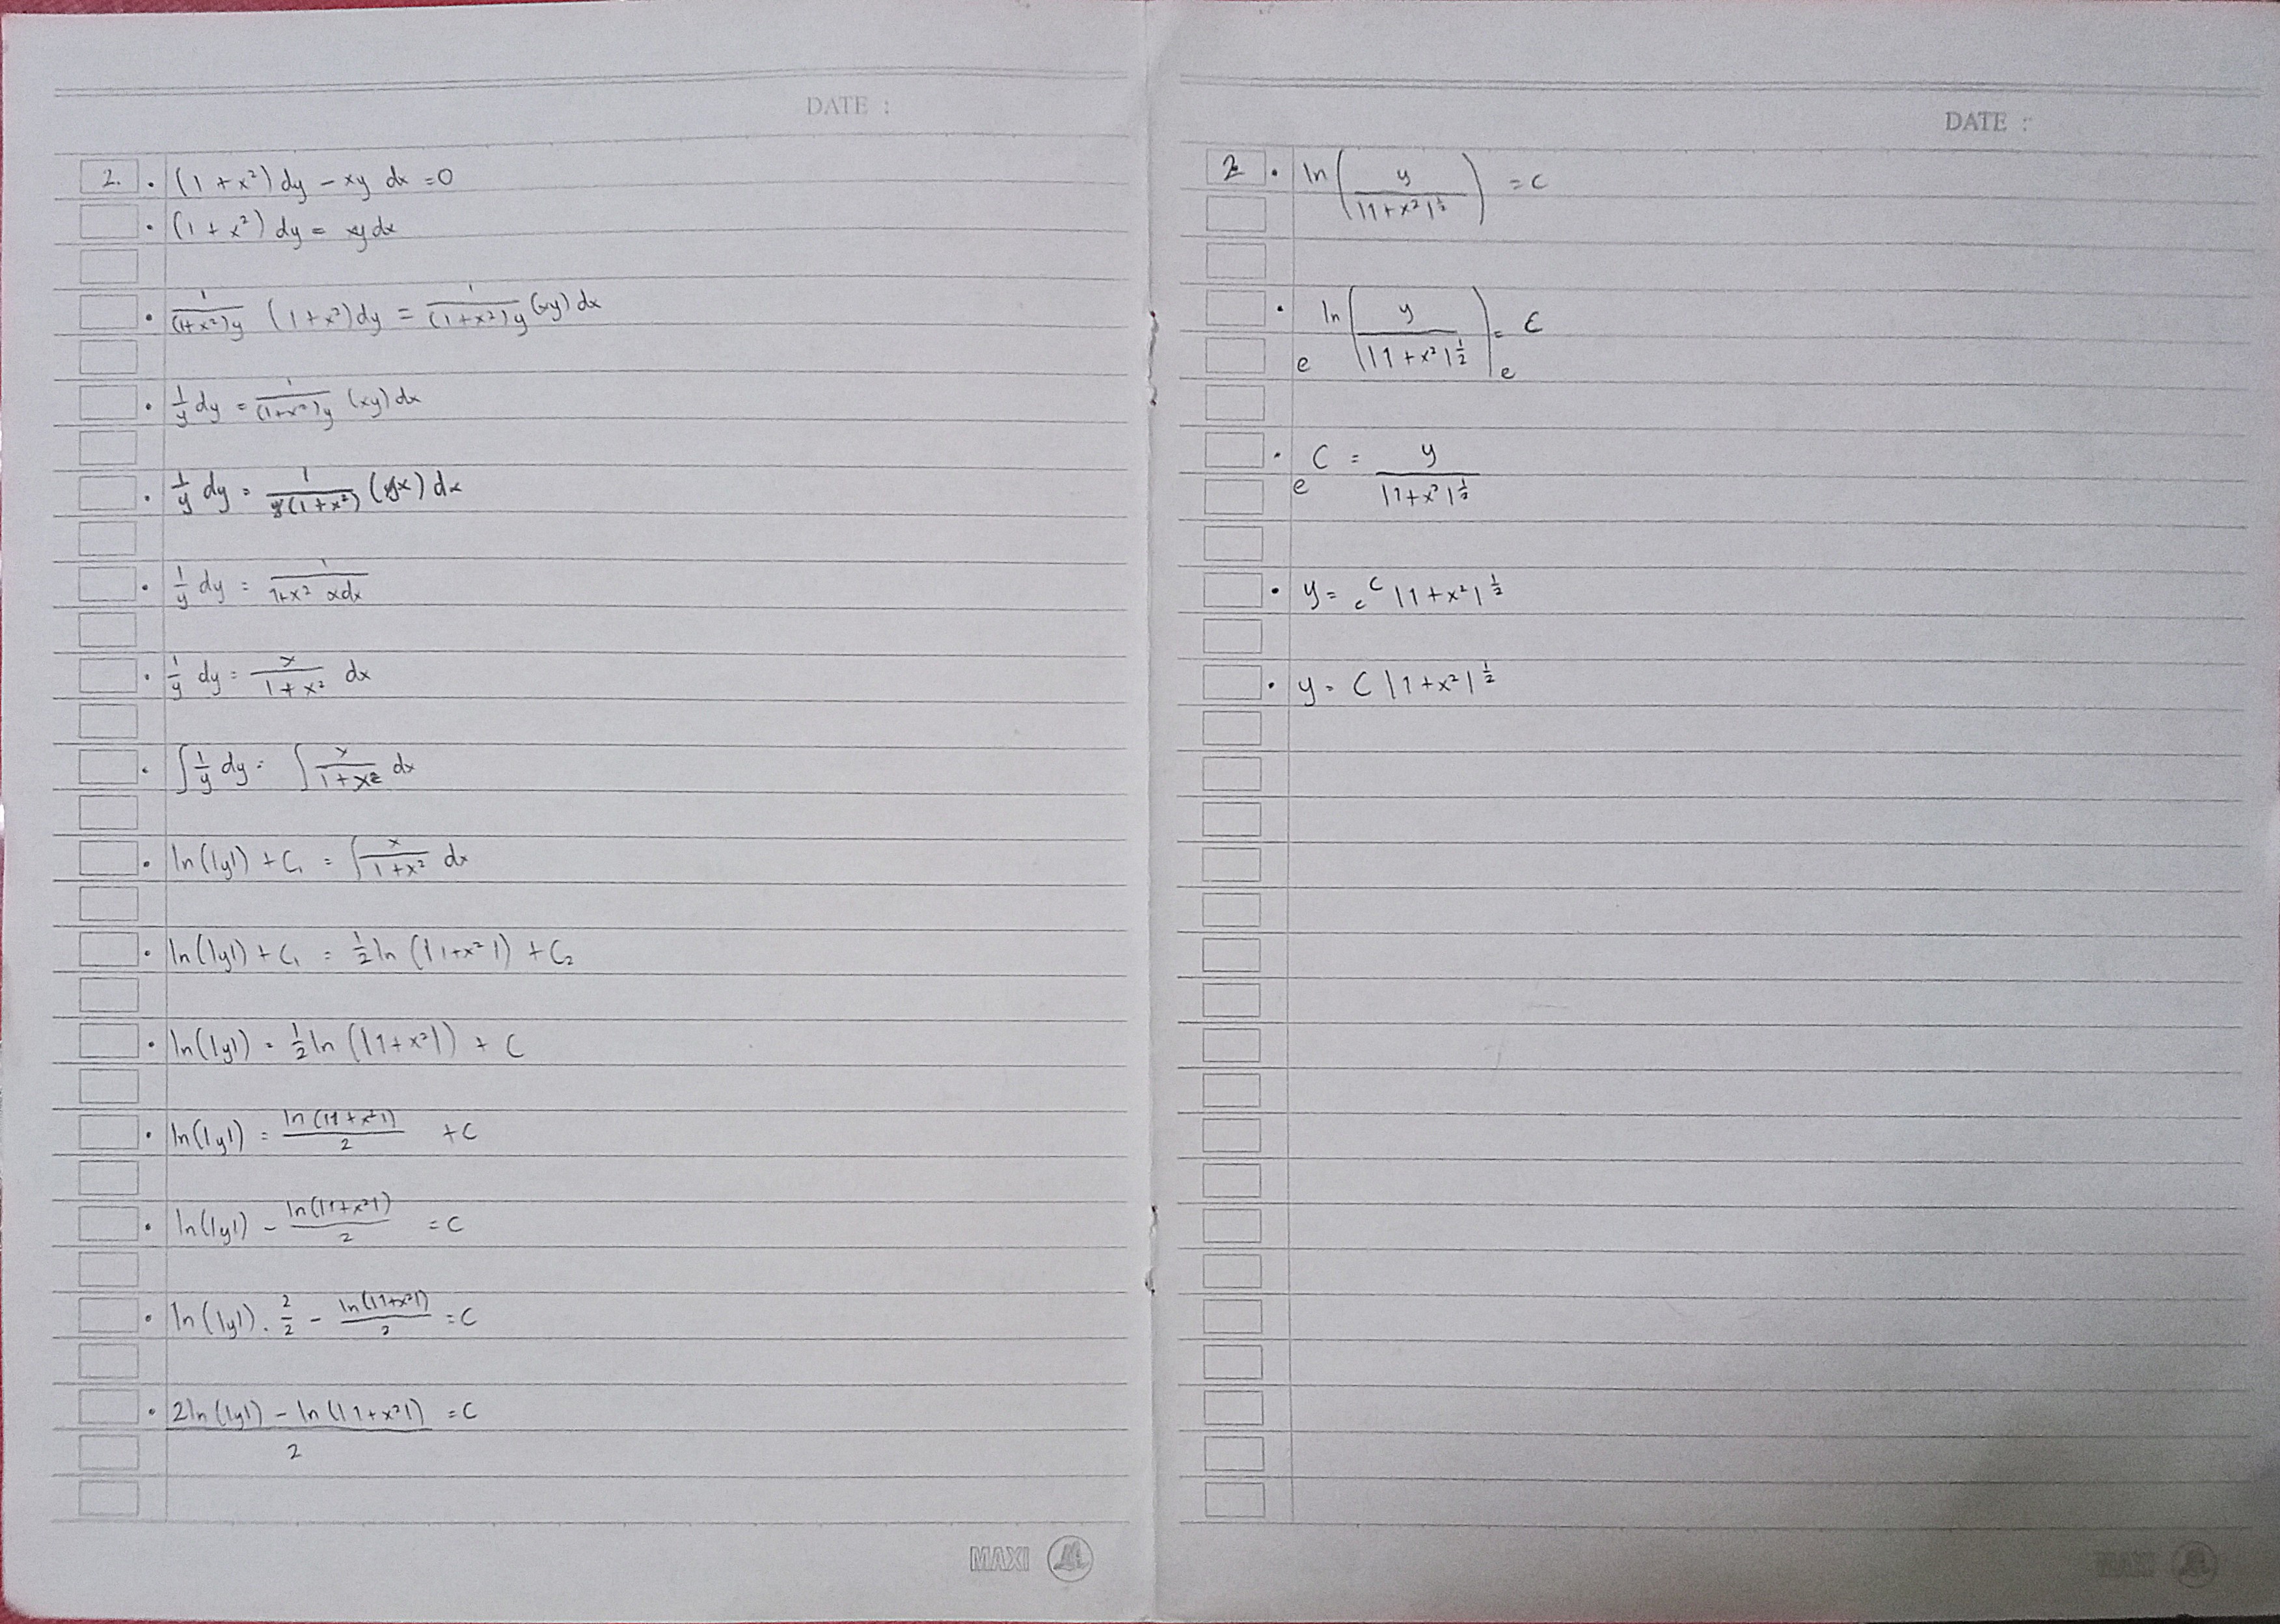 DATE :
2. • (1 + x²) dy – xy dx = 0
• (1 + x²) dy = xy dx
• 1/((1+x²)y) (1 + x²) dy = 1/((1+x²)y) (xy) dx
• 1/y dy = 1/((1+x²)y) (xy) dx
• 1/y dy = 1/(y(1+x²)) (yx) dx
• 1/y dy = 1/(1+x² xdx)
• 1/y dy = x/(1+x²) dx
• ∫ 1/y dy = ∫ x/(1+x2) dx
• ln(|y|) + C₁ = ∫ x/(1+x²) dx
• ln(|y|) + C₁ = ½ ln (|1+x²|) + C₂
• ln(|y|) = ½ ln (|1+x²|) + C
• ln(|y|) = ln(|1+x²|)/2 + C
• ln(|y|) – ln(|1+x²|)/2 = C
• ln(|y|) . 2/2 – ln(|1+x²|)/2 = C
• (2ln(|y|) – ln(|1+x²|))/2 = C
MAXI
DATE :
2 • ln(y/|1+x²|^½) = C
• e^ln(y/|1+x²|^½) = e^C
• e^C = y/|1+x²|^½
• y = e^C |1+x²|^½
• y = C |1+x²|^½
MAXI